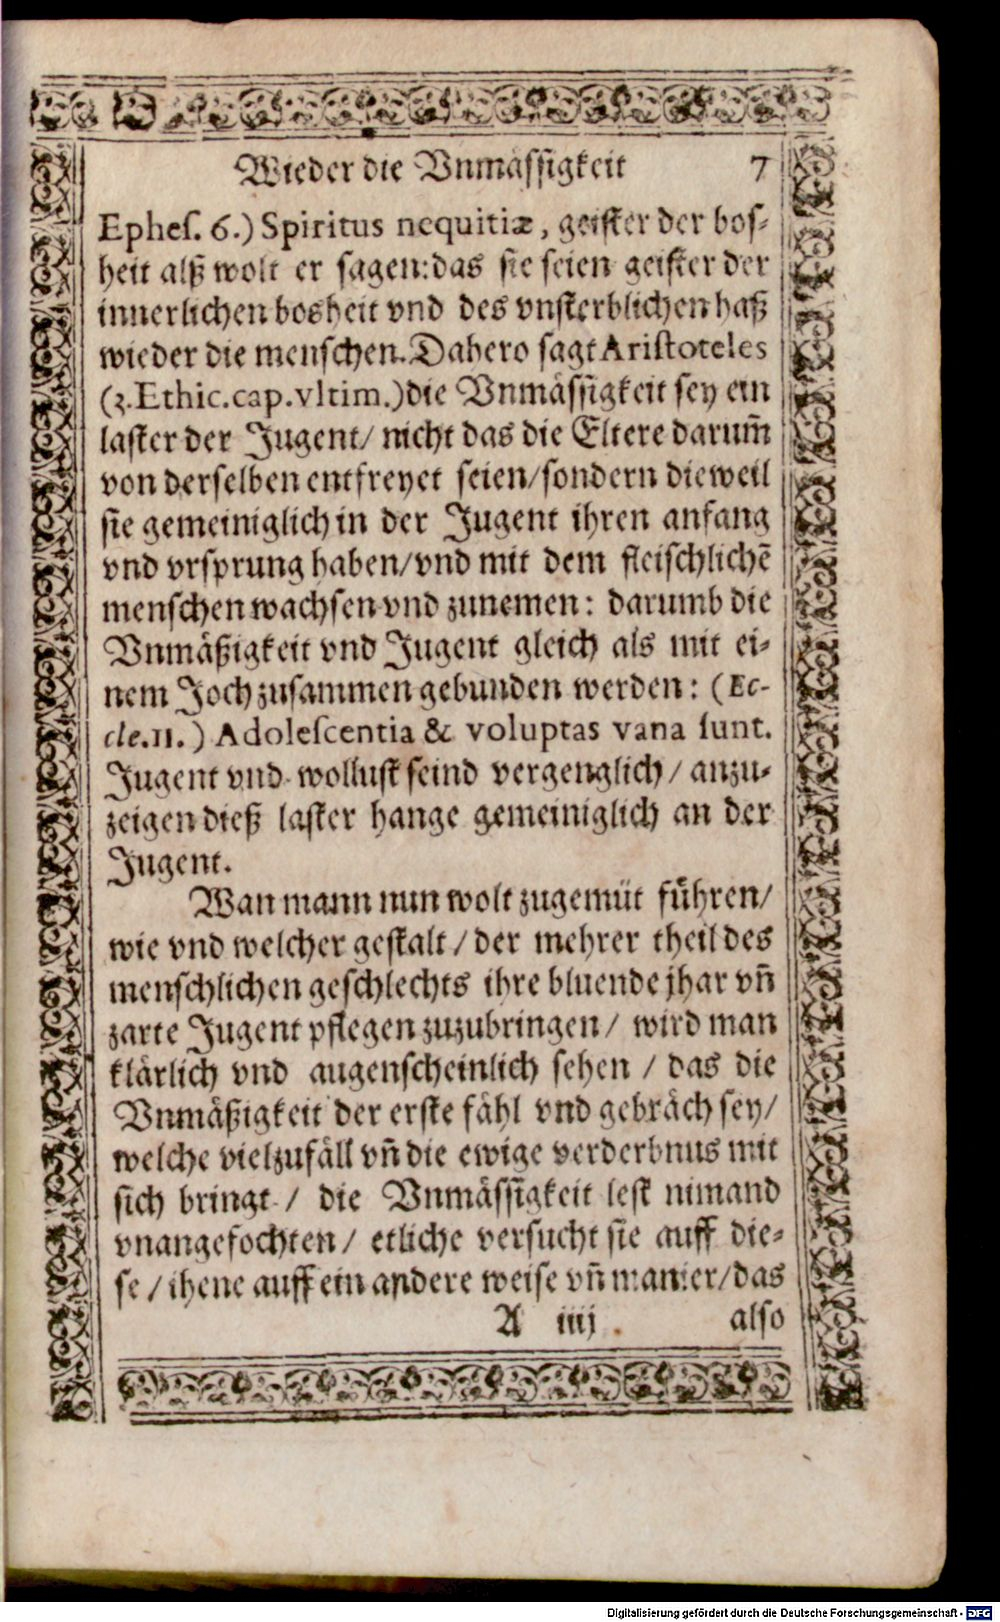 Wieder die Vnmässigkeit 7
Ephes. 6.) Spiritus nequitiæ, geister der bos-
heit alß wolt er sagen: das sie seien geister der
innerlichen bosheit vnd des vnsterblichen haß
wieder die menschen. Dahero sagt Aristoteles
(3. Ethic. cap. vltim.) die Vnmässigkeit sey ein
laster der Jugent/ nicht das die Eltere darum̃
von derselben entfreyet seien/ sondern dieweil
sie gemeiniglich in der Jugent ihren anfang
vnd vrsprung haben/ vnd mit dem fleischlichẽ
menschen wachsen vnd zunemen: darumb die
Vnmäßigkeit vnd Jugent gleich als mit ei-
nem Joch zusammen gebunden werden: (Ec-
cle. 11.) Adolescentia & voluptas vana sunt.
Jugent vnd wollust seind vergenglich / anzu-
zeigen dieß laster hange gemeiniglich an der
Jugent.
Wan mann nun wolt zugemüt führen/
wie vnd welcher gestalt / der mehrer theil des
menschlichen geschlechts ihre bluende jhar vñ
zarte Jugent pflegen zuzubringen / wird man
klärlich vnd augenscheinlich sehen / das die
Vnmäßigkeit der erste fähl vnd gebräch sey/
welche vielzufäll vñ die ewige verderbnus mit
sich bringt / die Vnmässigkeit lest nimand
vnangefochten / etliche versucht sie auff die-
se / ihene auff ein andere weise vñ manier/ das
A iiij. also
Digitalisierung gefördert durch die Deutsche Forschungsgemeinschaft - DFG